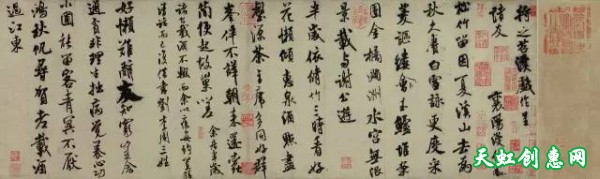 將之苕溪戲作呈
諸友 襄陽漫仕黻
松竹留因夏溪山去為
秋久賡白雪詠更度采
菱謳縷玉鱸堆案
團金橘滿洲水宮無限
景載與謝公遊
半歲依修竹三時看好
花懶傾惠泉酒點盡
壑源茶主席多同好群
峰伴不嘩朝來還蠹
簡便起故巢嗟 余居半歲
諸公載酒不輟而余以疾每約置膳
清話而已復借書劉李周三姓
好懶難辭友知窮豈念
通貧非理生拙病覺養心功
小圃能留客青冥不厭
鴻秋帆尋賀老載酒
過江東
天虹创意网